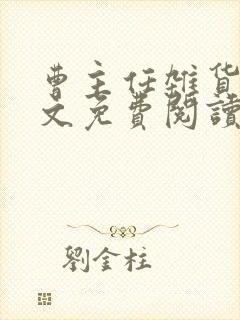 曹主任雑貨
文免費閱讀
劉金柱